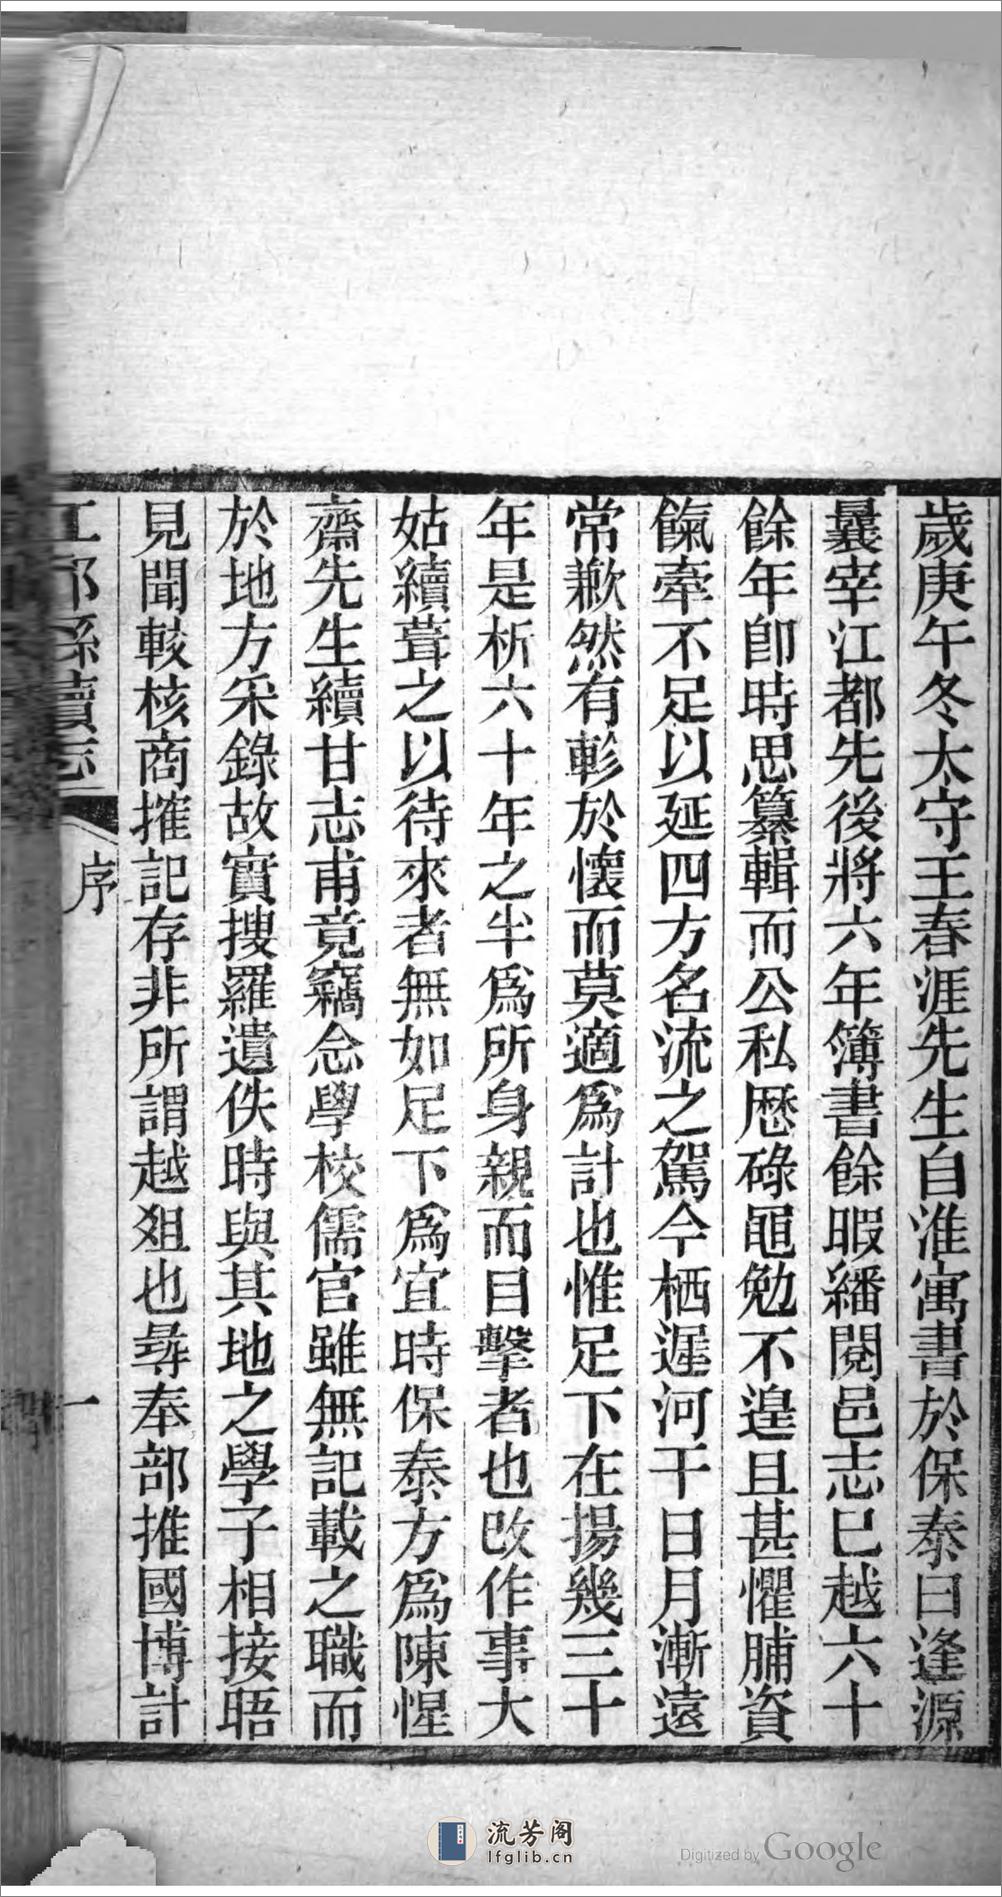 歲庚午冬太守王春涯先生自淮寓書於保泰曰逢源
曩宰江都先後將六年簿書餘暇繙閱邑志已越六十
餘年卽時思纂輯而公私歷碌黽勉不遑且甚懼脯資
餼牽不足以延四方名流之駕今栖遲河干日月漸遠
常歉然有軫於懷而莫適爲計也惟足下在揚幾三十
年是析六十年之半爲所身親而目擊者也改作事大
姑續葺之以待來者無如足下爲宜時保泰方爲陳惺
齋先生續甘志甫竟竊念學校儒官雖無記載之職而
於地方采錄故實搜羅遺佚時與其地之學子相接晤
見聞較核商搉記存非所謂越俎也尋奉部推國博計
江都縣續志
序
一
流芳阁
lfglib.cn
Digitized by Google